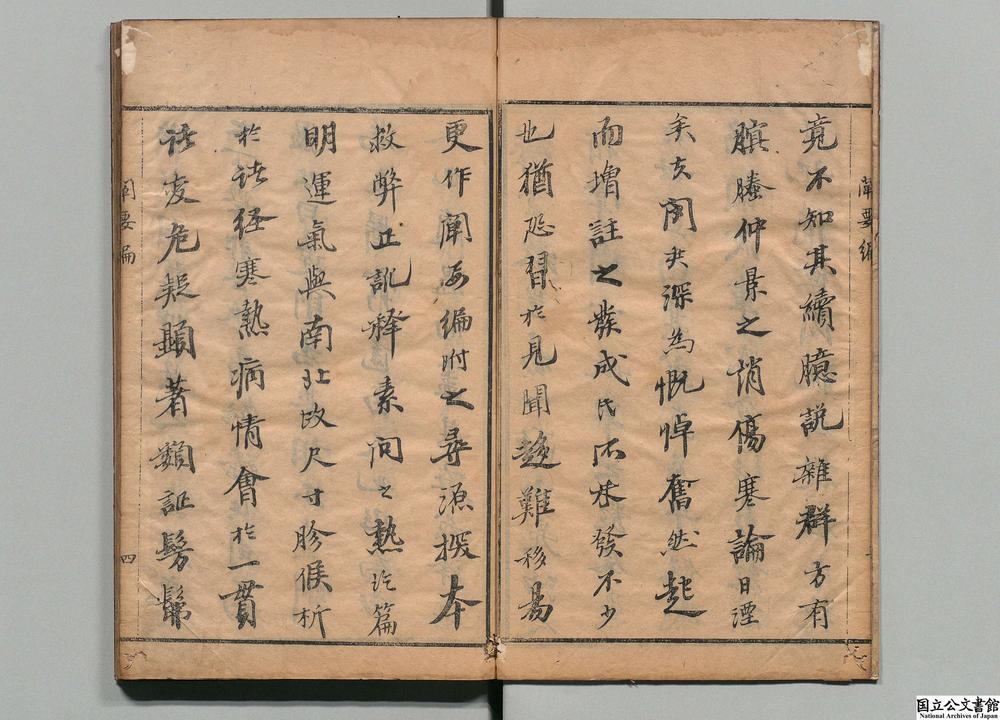 竟不知其續臆說雜群方有
臏塍仲景之悄傷寒論日湮
矣玄閣尹深為慨悼奮然起
而增註之蔟成氏所未發不少
也猶恐習於見聞趍難移易
更作闡要編附之尋源探本
救弊正訛释素问之熱论篇
明運氣與南北政尺寸胗候析
於诸经寒熱病情會於一貫
诸变危疑顕著類証髣髴
闡要編
闡要編
四
国立公文書館
National Archives of Japan